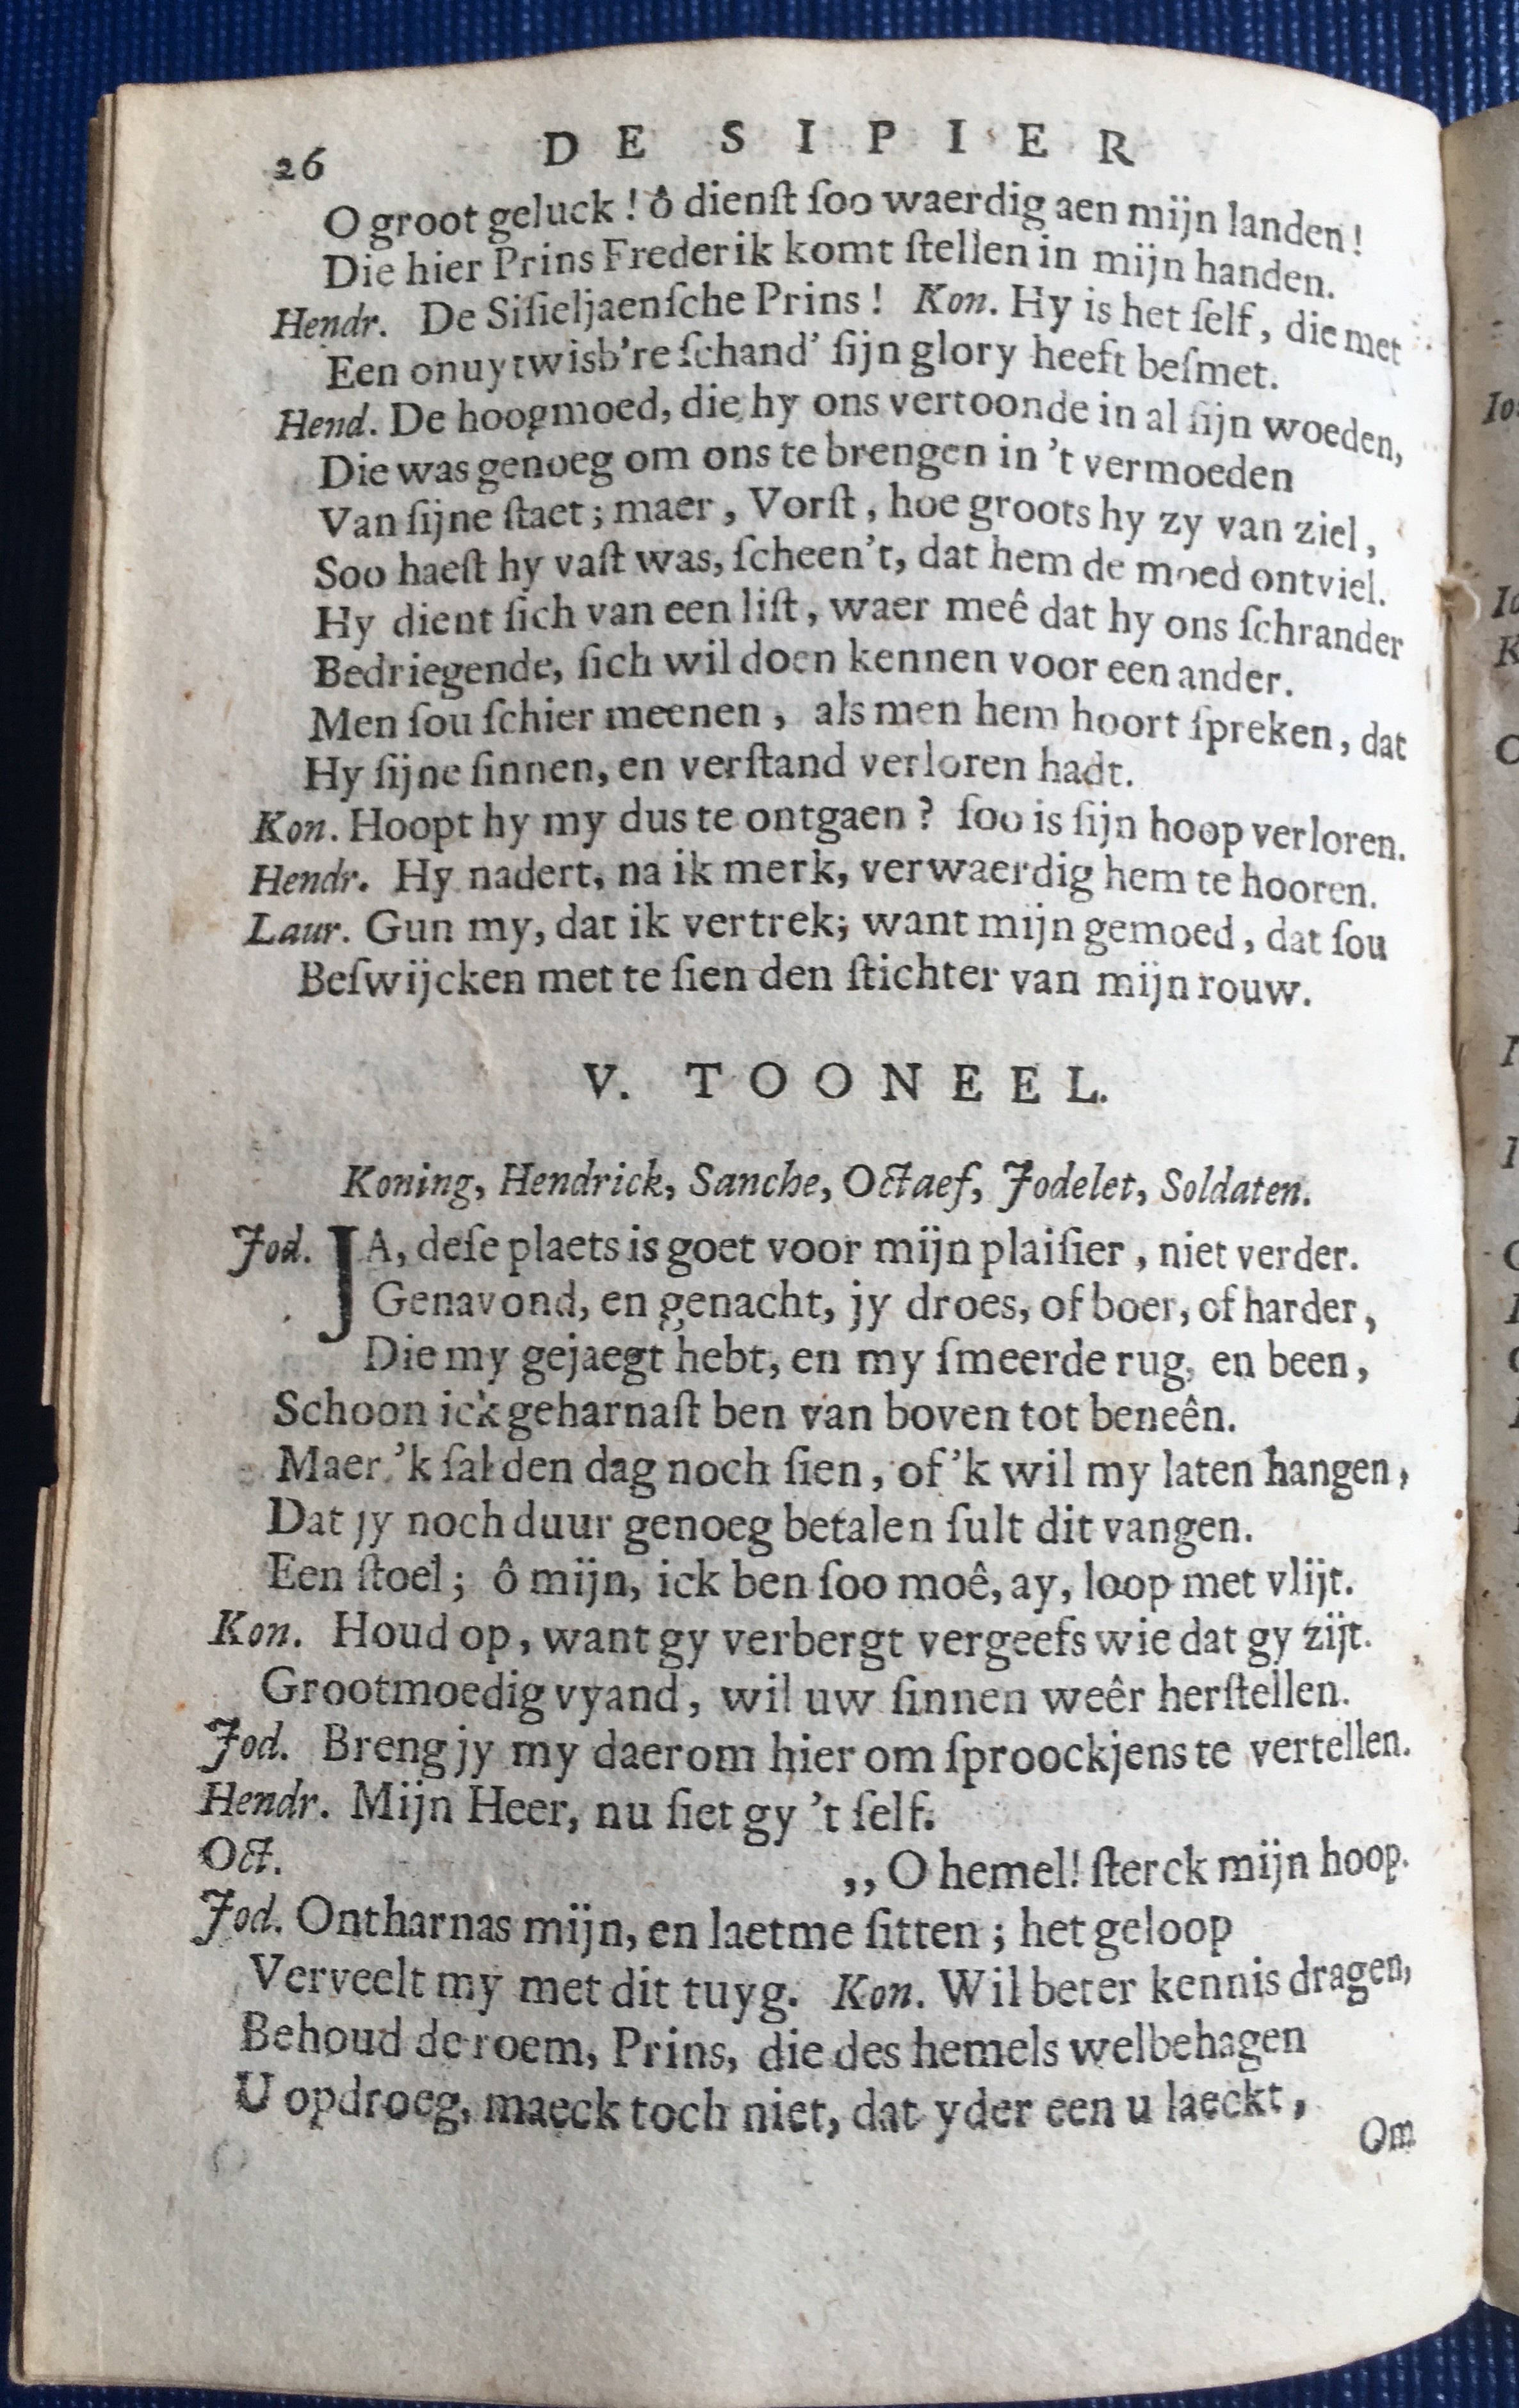 26 DE SIPIER
O groot geluck ! ô dienſt ſoo waerdig aen mijn landen !
Die hier Prins Frederik komt ſtellen in mijn handen.
Hendr. De Siſieljaenſche Prins ! Kon. Hy is het ſelf, die met
Een onuytwisb're ſchand' ſijn glory heeft beſmet.
Hend. De hoogmoed, die hy ons vertoonde in al ſijn woeden,
Die was genoeg om ons te brengen in 't vermoeden
Van ſijne ſtaet ; maer, Vorſt, hoe groots hy zy van ziel,
Soo haeſt hy vaſt was, ſcheen't, dat hem de moed ontviel.
Hy dient ſich van een liſt, waer meê dat hy ons ſchrander
Bedriegende, ſich wil doen kennen voor een ander.
Men ſou ſchier meenen, als men hem hoort ſpreken, dat
Hy ſijne ſinnen, en verſtand verloren hadt.
Kon. Hoopt hy my dus te ontgaen ? ſoo is ſijn hoop verloren.
Hendr. Hy nadert, na ik merk, verwaerdig hem te hooren.
Laur. Gun my, dat ik vertrek; want mijn gemoed, dat ſou
Beſwijcken met te ſien den ſtichter van mijn rouw.
V. TOONEEL.
Koning, Hendrick, Sanche, Octaef, Jodelet, Soldaten.
Jod. JA, deſe plaets is goet voor mijn plaiſier, niet verder.
Genavond, en genacht, jy droes, of boer, of harder,
Die my gejaegt hebt, en my ſmeerde rug, en been,
Schoon ick geharnaſt ben van boven tot beneên.
Maer 'k ſal den dag noch ſien, of 'k wil my laten hangen,
Dat jy noch duur genoeg betalen ſult dit vangen.
Een ſtoel ; ô mijn, ick ben ſoo moê, ay, loop met vlijt.
Kon. Houd op, want gy verbergt vergeefs wie dat gy zijt.
Grootmoedig vyand, wil uw ſinnen weêr herſtellen.
Jod. Breng jy my daerom hier om ſproockjens te vertellen.
Hendr. Mijn Heer, nu ſiet gy 't ſelf.
Oct. ,, O hemel! ſterck mijn hoop.
Jod. Ontharnas mijn, en laetme ſitten ; het geloop
Verveelt my met dit tuyg. Kon. Wil beter kennis dragen,
Behoud de roem, Prins, die des hemels welbehagen
U opdroeg, maeck toch niet, dat yder een u laeckt,
Om